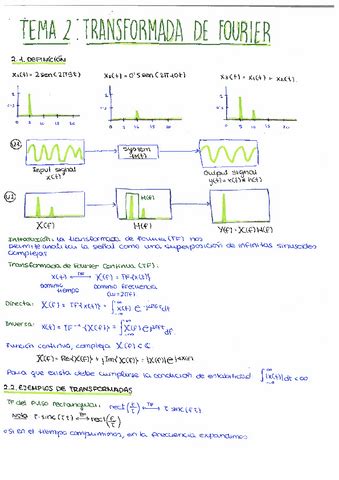 TEMA 2: TRANSFORMADA DE FOURIER
2.1. DEFINICIÓN
x₁(t) = 2 sen(2π5t) x₂(t) = 0'5 sen(2π10t) x₃(t) = x₁(t) + x₂(t)
5 10 15 20 5 10 15 20 5 10 15 20
System
h(t)
Input signal
x(t)
Output signal
y(t) = x(t) * h(t)
H(f)
X(f) H(f) Y(f) = X(f) H(f)
Introducción: la transformada de Fourier (TF) nos
permite analizar la señal como una superposición de infinitas sinusoides
complejas
Transformada de Fourier Continua (TF):
x(t) ⟷ X(f) = TF{x(t)}
dominio tiempo dominio frecuencia
(ω=2πf)
Directa: X(f) = TF{x(t)} = ∫ x(t) e^-j2πft dt
Inversa: x(t) = TF⁻¹{X(f)} = ∫ X(f) e^j2πft df
Función continua, compleja X(f) ∈ ℂ
X(f) = Re{X(f)} + j Im{X(f)} = |X(f)| e
Para que exista debe cumplirse la condición de estabilidad ∫ |x(t)| dt < ∞
2.2. EJEMPLOS DE TRANSFORMADAS
TF del pulso rectangular: rect(t/τ) ⟷ τ sinc(fτ)
Nota τ sinc(tτ) ⟷ rect(f/τ)
Si en el tiempo comprimimos, en la frecuencia expandimos